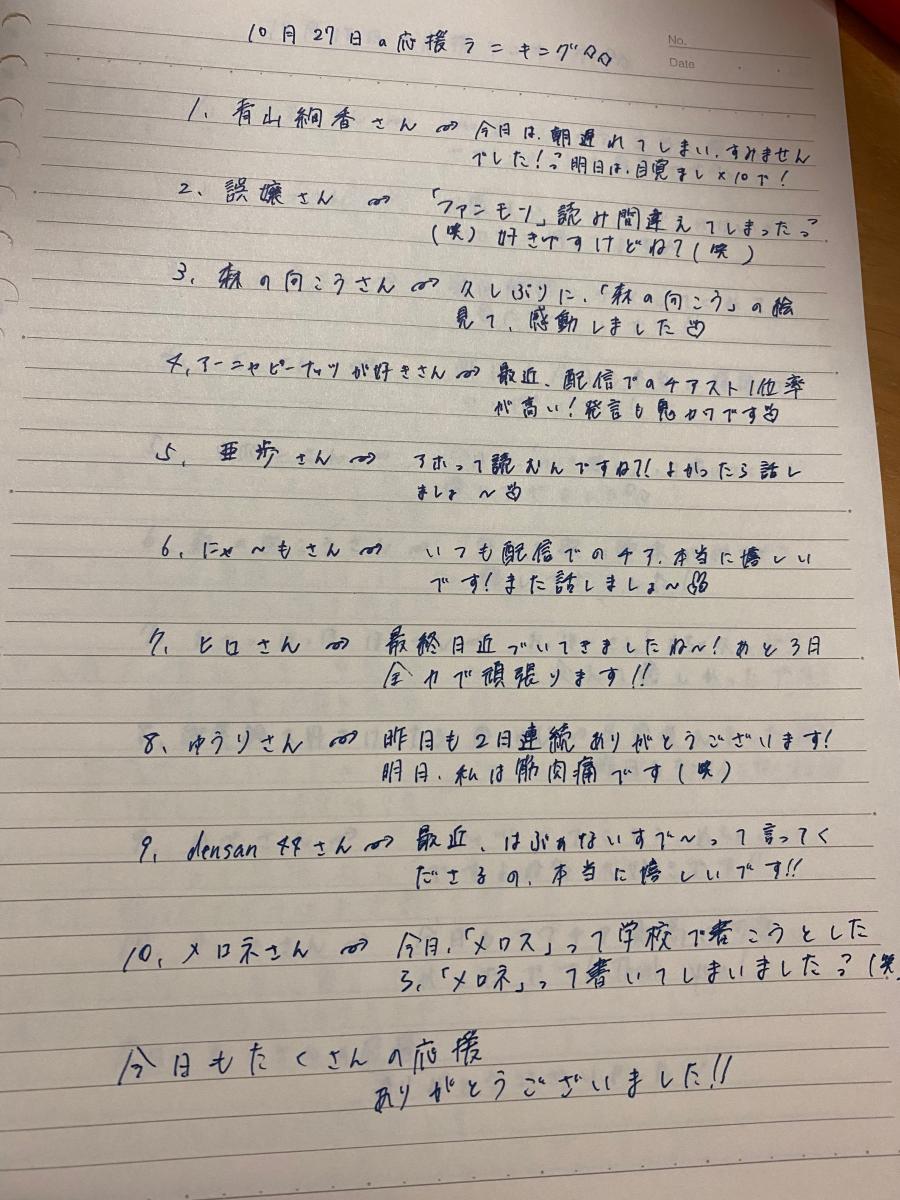 No.
Date
10月27日の応援ランキング☆☆
1、青山絢香さん ⇨ 今日は、朝遅れてしまい、すみません
でした!? 明日は、目覚まし×10で!
2、誤嬢さん ⇨ 「ファンモン」読み間違えてしまった?
(笑) 好きですけどね?(笑)
3、森の向こうさん ⇨ 久しぶりに、「森の向こう」の絵
見て、感動しました
4、アーニャピーナッツが好きさん ⇨ 最近、配信でのチアスト1位率
が高い!発言も鬼カワです
5、亜歩さん ⇨ アホって読むんですね?! よかったら話し
ましょ〜
6、にゃ〜もさん ⇨ いつも配信でのチア、本当に嬉しい
です!また話しましょ〜
7、ヒロさん ⇨ 最終日近づいてきましたね〜! あと3日
全力で頑張ります!!
8、ゆうりさん ⇨ 昨日も2日連続ありがとうございます!
明日、私は筋肉痛です(笑)
9、densan44さん ⇨ 最近、はぶぁないすで〜って言ってく
ださるの、本当に嬉しいです!!
10、メロネさん ⇨ 今日、「メロス」って学校で書こうとした
ら、「メロネ」って書いてしまいました?(笑
今日もたくさんの応援
ありがとうございました!!